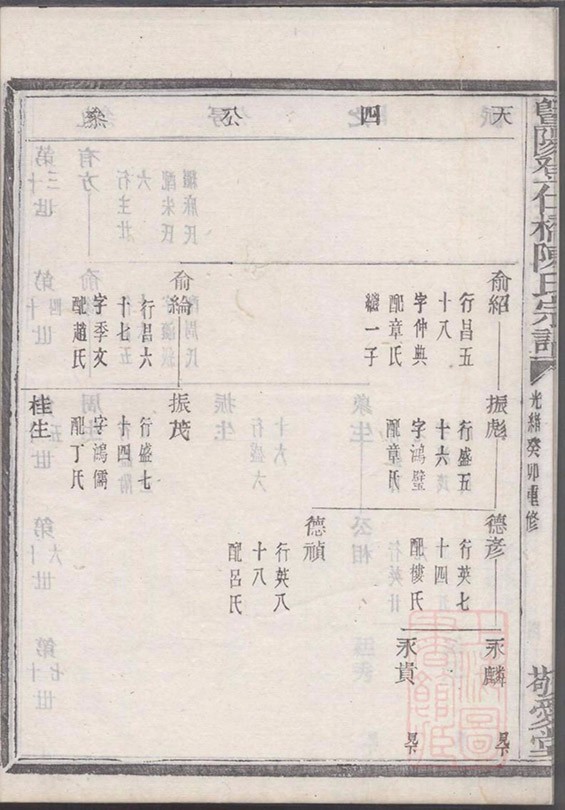 暨陽孝仁橋陳氏宗譜
光緒癸卯重修
敬愛堂
天四公
俞紹
行昌五
十八
字仲典
配章氏
繼一子
俞綸
行昌六
十七
字季文
配趙氏
振彪
行盛五
十六
字鴻璧
配章氏
振茂
行盛七
十四
字鴻儒
配丁氏
桂生
德彥
行英七
十四
配樓氏
德禎
行英八
十八
配呂氏
永麟
永貴